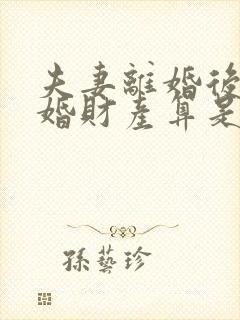 夫妻離婚後
婚財產算是
孫藝珍